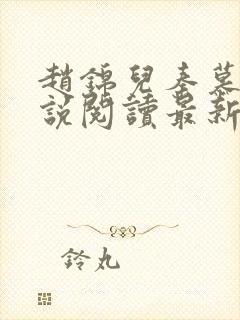 趙錦兒秦慕
說閱讀最新
鈴丸